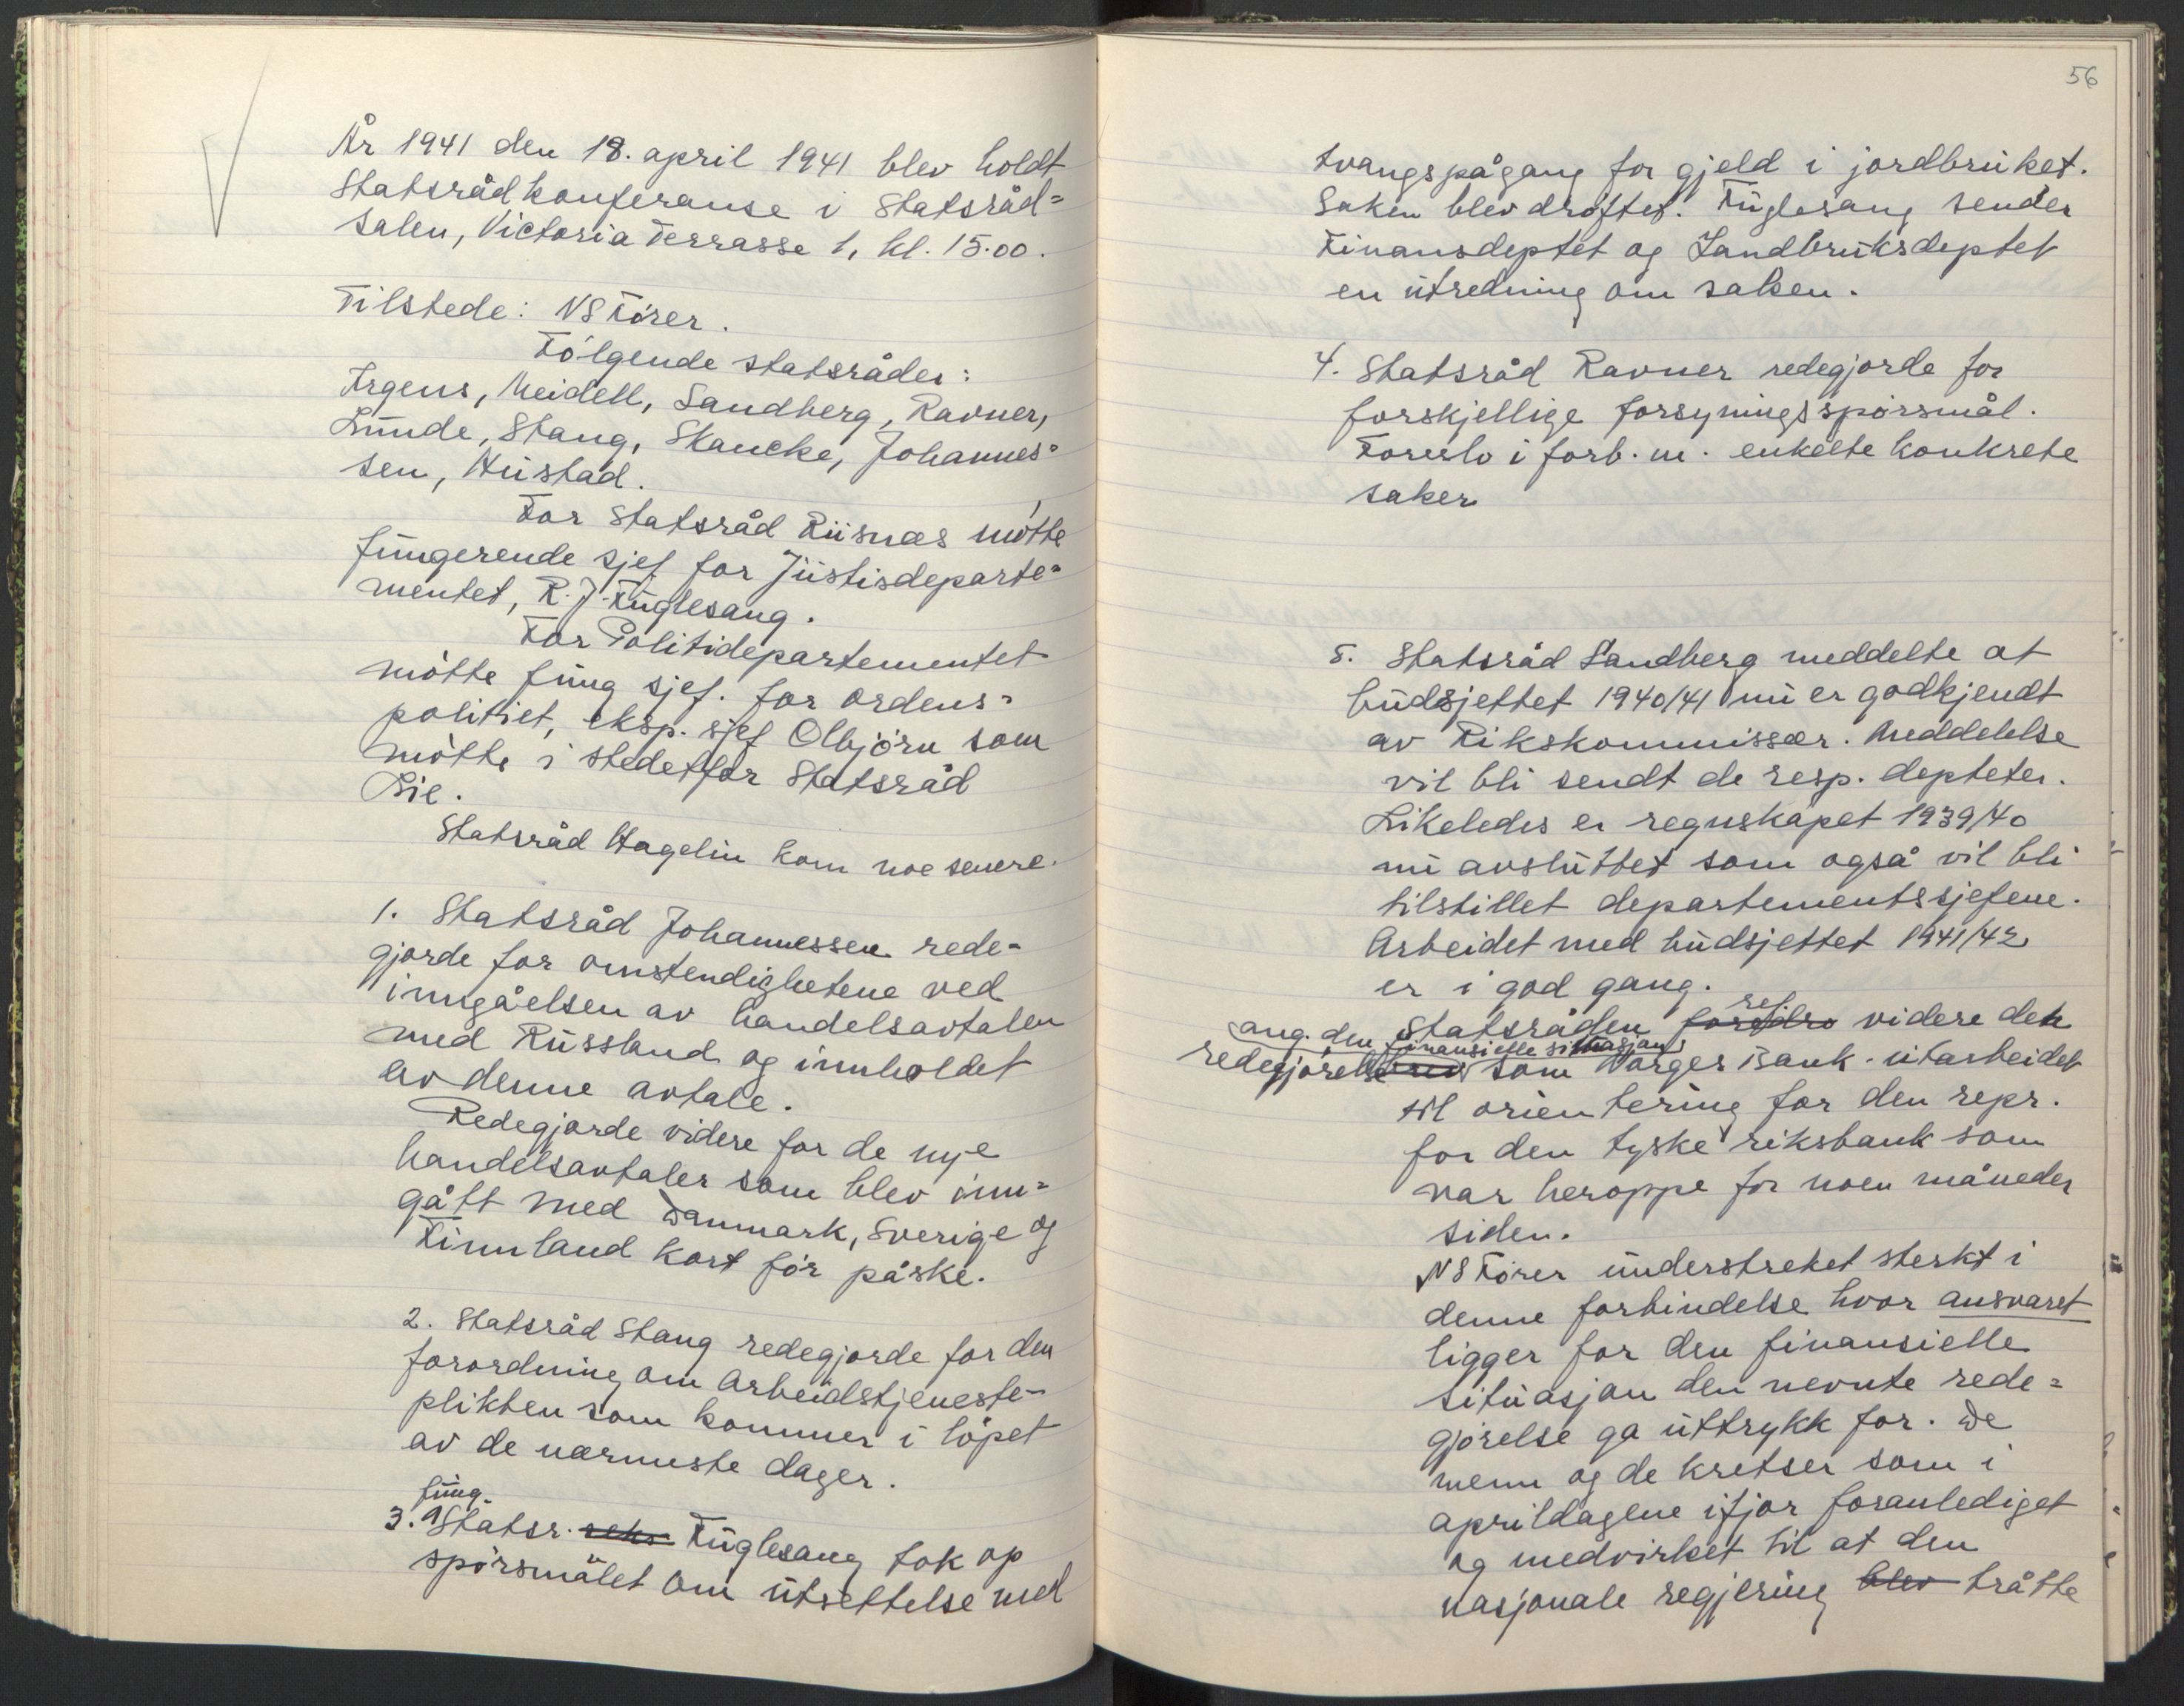 År 1941 den 18. april 1941 blev holdt
Statsrådkonferanse i Statsråd=
salen, Victoria Terrasse 1, kl. 15.00.
Tilstede: NS Förer.
Fölgende statsråder:
Irgens, Meidell, Sandberg, Ravner,
Lunde, Stang, Skancke, Johannes=
sen, Hustad.
For Statsråd Riisnæs mötte
fungerende sjef for Justisdeparte=
mentet, R. J. Fuglesang.
For Politidepartementet
mötte fung sjef. for ordens=
politiet, eksp. sjef Olbjörn som
mötte i stedetfor Statsråd
Lie.
Statsråd Hagelin kom noe senere.
1. Statsråd Johannessen rede-
gjorde for omstendighetene ved
inngåelsen av handelsavtalen
med Russland og innholdet
av denne avtale.
Redegjorde videre for de nye
handelsavtaler som blev inn=
gått med Danmark, Sverige og
Finnland kort för påske.
2. Statsråd Stang redegjorde for den
forordning om Arbeidstjeneste-
plikten som kommer i löpet
av de nærmeste dager.
fung.
3. Statsr. seks Fuglesang tok op
spörsmålet om utsettelse med
56
tvangspågang for gjeld i jordbruket.
Saken blev dröftet. Fuglesang sender
Finansdeptet og Landbruksdeptet
en utredning om saken.
4. Statsråd Ravner redegjorde for
forskjellige forsyningsspörsmål.
Foreslo i forb. m. enkelte konkrete
saker
5. Statsråd Sandberg meddelte at
budsjettet 1940/41 nu er godkjendt
av Rikskommissær. Meddelelse
vil bli sendt de resp. depteter.
Likeledes er regnskapet 1939/40
nu avsluttet som også vil bli
tilstillet departementssjefene.
Arbeidet med budsjettet 1941/42
er i god gang.
ref.
Statsråden foredro videre den
ang. den finansielle situasjon
redegjörelse som Norges Bank utarbeidet
til orientering for den repr.
for den tyske riksbank som
var heroppe for noen måneder
siden.
NS Förer understreket sterkt i
denne forbindelse hvor ansvaret
ligger for den finansielle
situasjon den nevnte rede=
gjörelse ga uttrykk for. De
menn og de kretser som i
aprildagene ifjor foranlediget
og medvirket til at den
nasjonale regjering blev tråtte